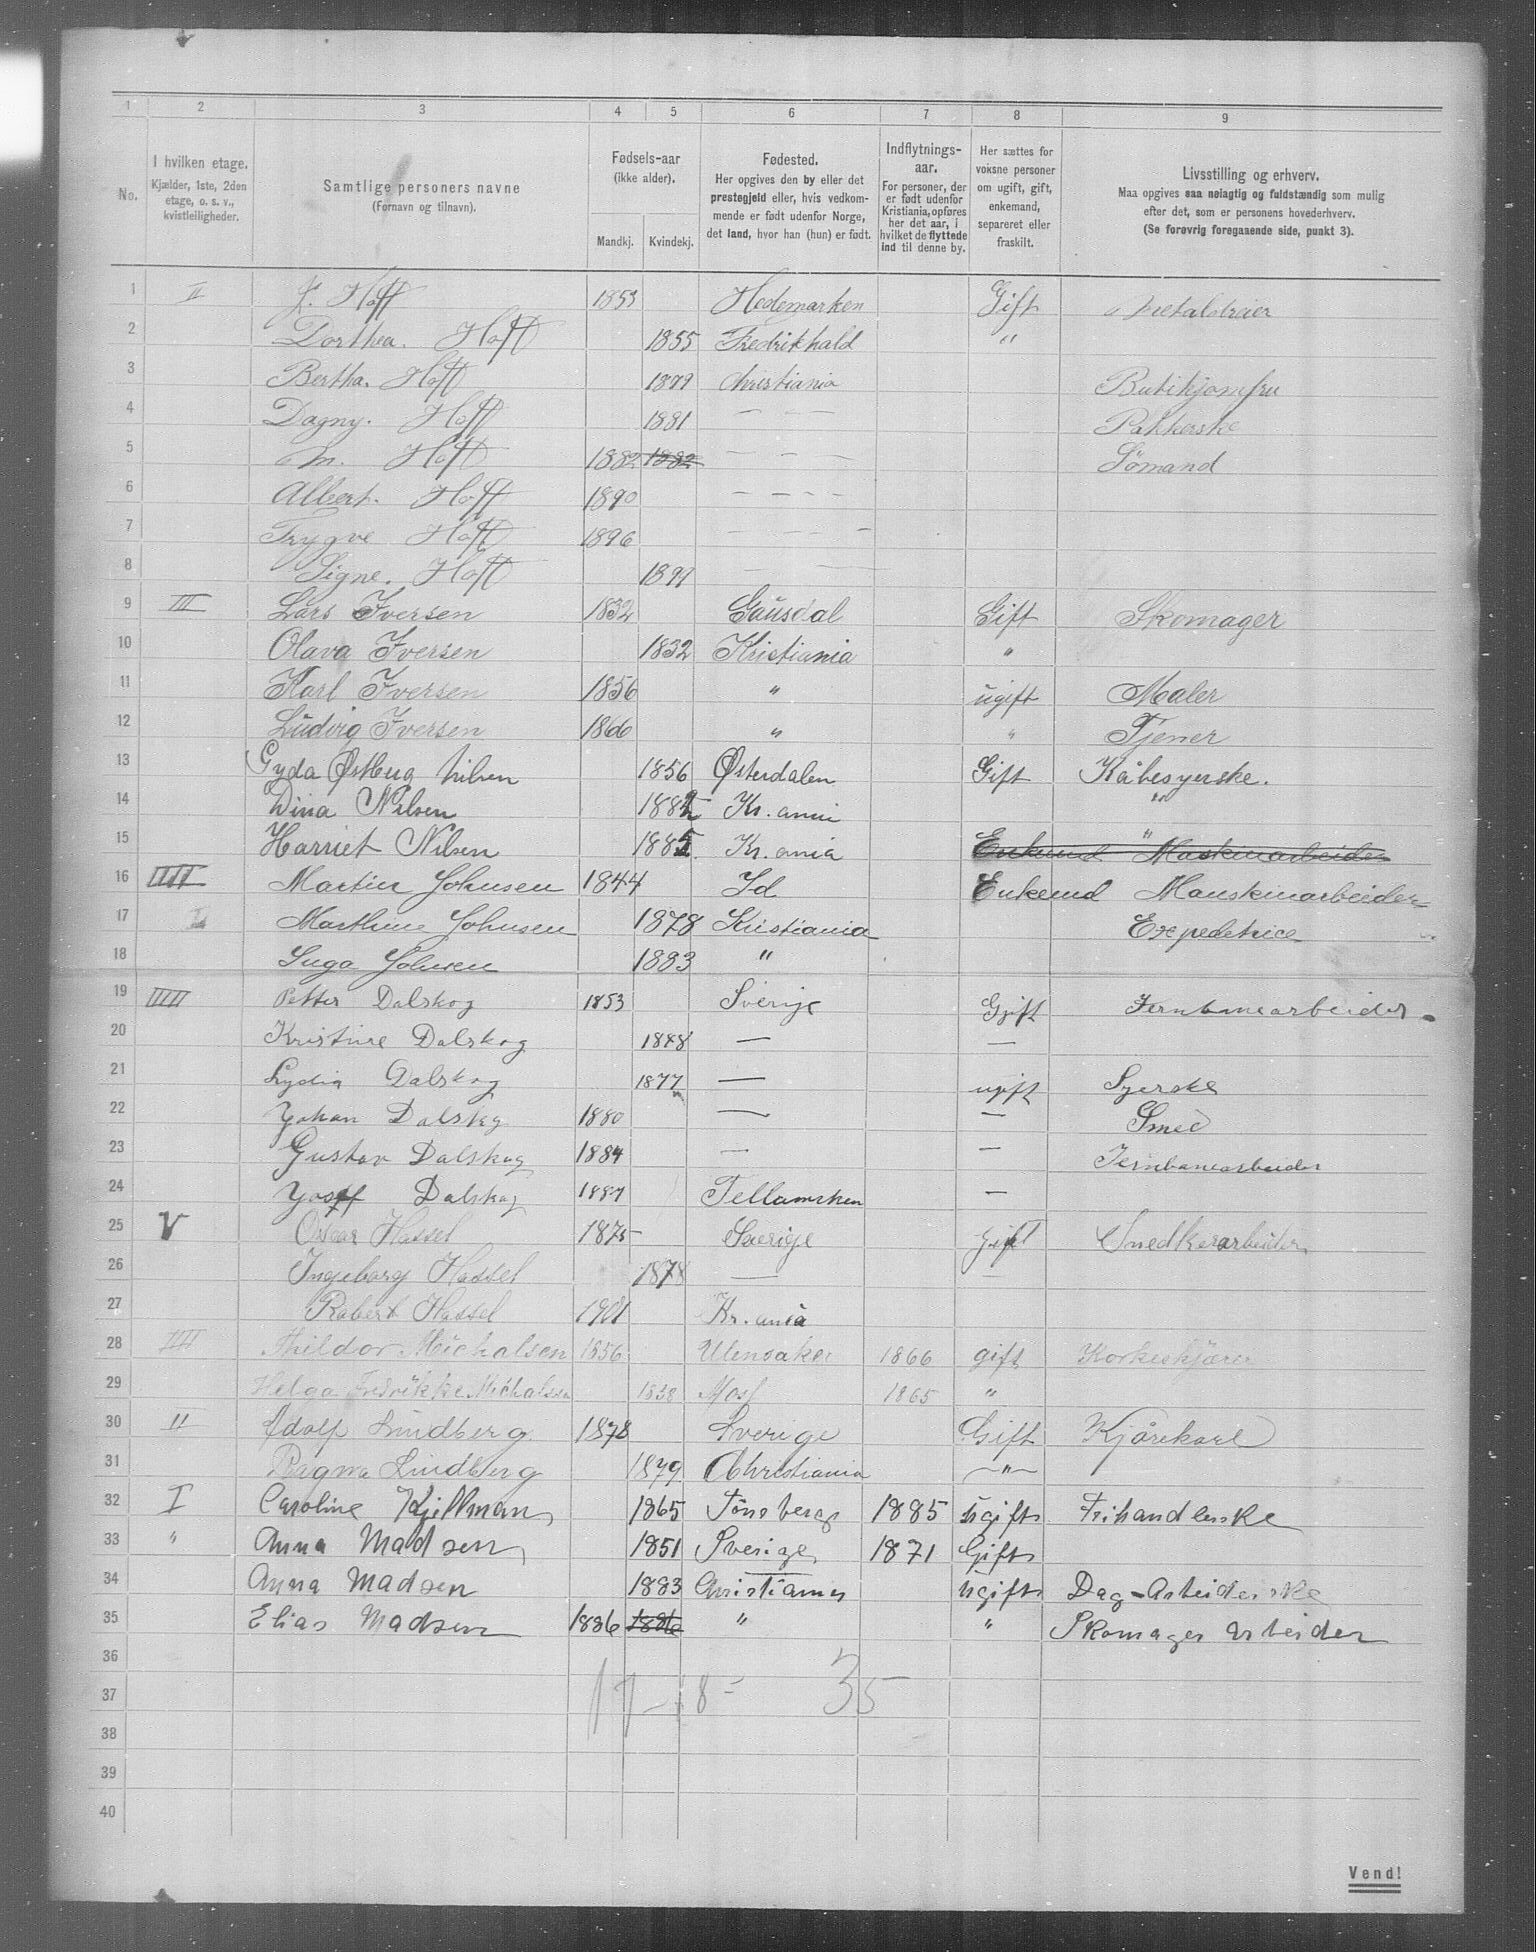 1 2 3 4 5 6 7 8 9
No.
I hvilken etage.
Kjælder, 1ste, 2den
etage, o. s. v.,
kvistleiligheder.
Samtlige personers navne
(Fornavn og tilnavn).
Fødsels-aar
(ikke alder).
Mandkj. Kvindekj.
Fødested.
Her opgives den by eller det
prestegjeld eller, hvis vedkom-
mende er født udenfor Norge,
det land, hvor han (hun) er født.
Indflytnings-
aar.
For personer, der
er født udenfor
Kristiania, opføres
her det aar, i
hvilket de flyttede
ind til denne by.
Her sættes for
voksne personer
om ugift, gift,
enkemand,
separeret eller
fraskilt.
Livsstilling og erhverv.
Maa opgives saa nøiagtig og fuldstændig som mulig
efter det, som er personens hovederhverv.
(Se forøvrig foregaaende side, punkt 3).
1 II Hoff 1853 Hedemarken Gift
2 Dorthea. Hoff 1855 Fredrikhald "
3 Bertha. Hoff 1879 Christiania Butikjomfru
4 Dagny. Hoff 1881 — — Pakkerske
5 M. Hoff 1882 1882 — — — Sömand
6 Albert. Hoff 1890 — — — —
7 Trygve Hoff 1896 — — — —
8 Signe. Hoff 1899 — — —
9 III Lars Iversen 1832 Gausdal Gift Skomager
10 Olava Iversen 1832 Kristiania "
11 Karl Iversen 1856 " ugift Maler
12 Ludvig Iversen 1866 " " Tjener
13 Gyda Østberg Nilsen 1856 Østerdalen Gift Kåbesyerske.
14 Dina Nilsen 1882 Kr. ania "
15 Harriet Nilsen 1885 Kr. ania " Enkemd Maskinarbeider
16 IIII Martin Johnsen 1844 Id Enkemd Manskinarbeider
17 I Marthine Johnsen 1878 Kristiania Expedetrice
18 Inga Johnsen 1883 "
19 IIII Petter Dalskog 1853 Sverige Gift Jernbanearbeider
20 Kristine Dalskog 1848 — —
21 Lydia Dalskog 1877 — ugift Syerske
22 Johan Dalskog 1880 — — Smed
23 Gustav Dalskog 1884 — — Jernbanearbeider
24 Dalskog 1887 Tellamrken —
25 V Oscar Hassel 1875 Sverige gift Snedkerarbeider
26 Ingeborg Hassel 1878 — —
27 Robert Hassel 1901 Kr. ania
28 III Thildor Michalsen 1856 Ulensaker 1866 gift Korkeskjærer
29 Helga Fredrikke Michalsen 1858 Moss 1865 "
30 II Adolf Lindberg 1878 Sverige Gift Kjörekarl
31 Ragna Lindberg 1879 Christiania —"—
32 I Caroline Kjellman 1865 Tönsberg 1885 ugift Frihandlerske
33 " Anna Madsen 1851 Sverige 1871 Gift
34 Anna Madsen 1883 Christiania ugift Dag-Arbeiderske
35 Elias Madsen 1886 1886 " " Skomager Arbeider
36
37 17 - 18 = 35
38
39
40
Vend!